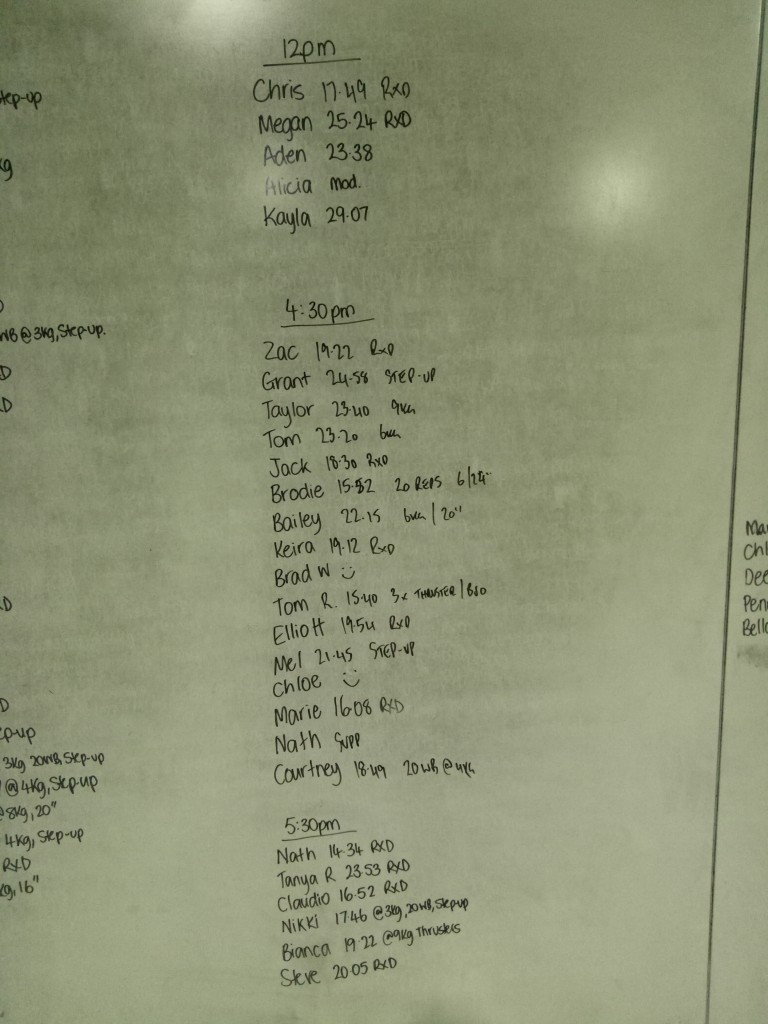 tep-up
kg
WB @ 3kg, Step-up.
D
D
D
D
ep-up
3kg 20WB, Step-up
@ 4kg, Step-up
@ 8kg, 20"
4kg, Step-up
RXD
kg, 16"
12pm
Chris 17.49 RxD
Megan 25.24 RxD
Aden 23.38
Alicia mod.
Kayla 29.07
4:30pm
Zac 19.22 RxD
Grant 24.58 STEP-UP
Taylor 23.40 9kg
Tom 23.20 6kg
Jack 18.30 RXD
Brodie 15.52 20 REPS 6/24"
Bailey 22.15 6kg / 20"
Keira 19.12 RxD
Brad W
Tom R. 15.40 3x THRUSTER /
Elliott 19.54 RXD
Mel 21.45 STEP-UP
Chloe
Marie 16.08 RXD
Nath SUPP
Courtney 18.49 20 WB @ 4kg
5:30pm
Nath 14.34 RXD
Tanya R 23.53 RXD
Claudio 16.52 RXD
Nikki 17.46 @3kg, 20WB, Step-up
Bianca 19.22 @9kg Thrusters
Steve 20.05 RXD
Ma
Chl
Dee
Pen
Bell